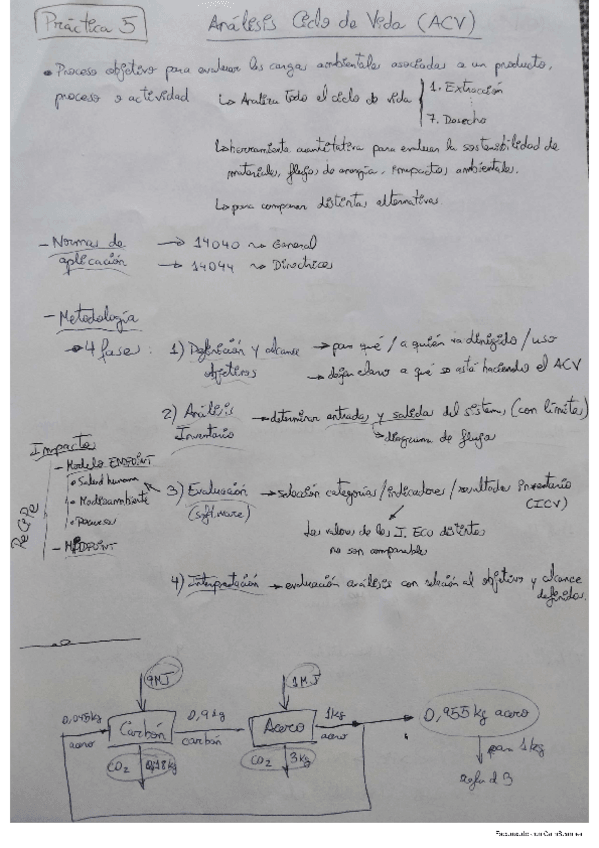 Práctica 5
Análisis Ciclo de Vida (ACV)
• Proceso objetivo para evaluar las cargas ambientales asociadas a un producto,
proceso o actividad
↳ Analiza todo el ciclo de vida
1. Extracción
7. Desecho
↳ herramienta cuantitativa para evaluar la sostenibilidad de
materiales, flujos de energía, impactos ambientales.
↳ para comparar distintas alternativas
- Normas de
aplicación
→ 14040 General
→ 14044 Directrices
- Metodología
→ 4 fases:
1) Definición y alcance
objetivos
→ para qué / a quién va dirigido / uso
→ dejar claro a qué se está haciendo el ACV
2) Análisis
Inventario
→ determinar entradas y salidas del sistema (con límites)
→ diagrama de flujo
Impacto
- Modelo ENDPOINT
• Salud humana
• Medioambiente
• Recursos
- MIDPOINT
ReCiPe
3) Evaluación
(software)
→ selección categorías/indicadores/resultados inventario
(ICV)
Los valores de los I. Eco distintos
no son comparables
4) Interpretación → evaluación análisis con relación al objetivo y alcance
definidos.
9MJ
1MJ
0,045kg
acero
Carbón
0,9kg
carbón
Acero
1kg
acero
0,955kg acero
CO₂
0,18kg
CO₂
3kg
para 1kg